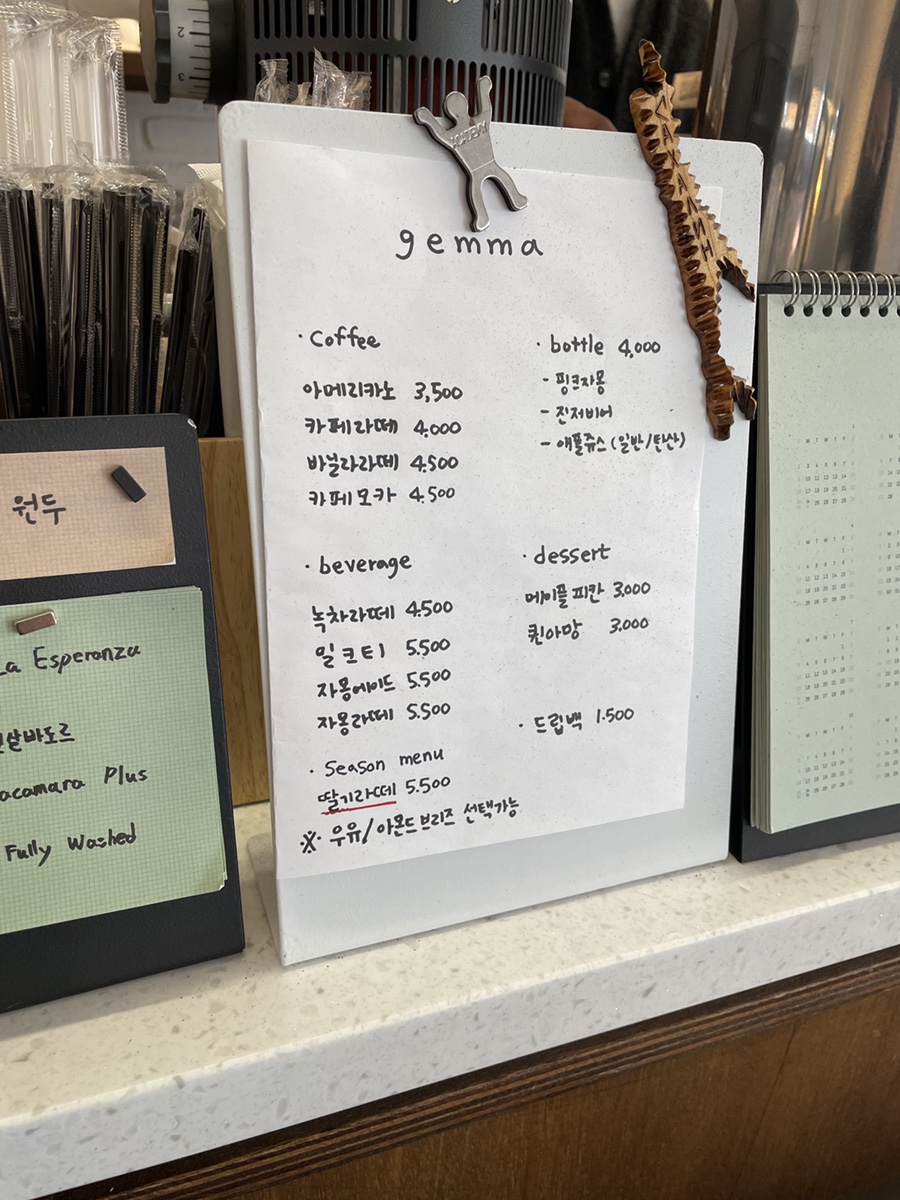 gemma
· Coffee
아메리카노 3,500
카페라떼 4,000
바닐라라떼 4.500
카페모카 4.500
· bottle 4,000
- 핑크자몽
- 진저비어
- 애플쥬스 (일반/탄산)
· beverage
녹차라떼 4.500
밀크티 5.500
자몽에이드 5.500
자몽라떼 5.500
· Season menu
딸기라떼 5.500
※ 우유/아몬드브리즈 선택가능
· dessert
메이플피칸 3.000
퀸아망 3.000
· 드립백 1.500
원두
La Esperanza
살바도르
acamara Plus
Fully Washed
ACADEMY
2
3